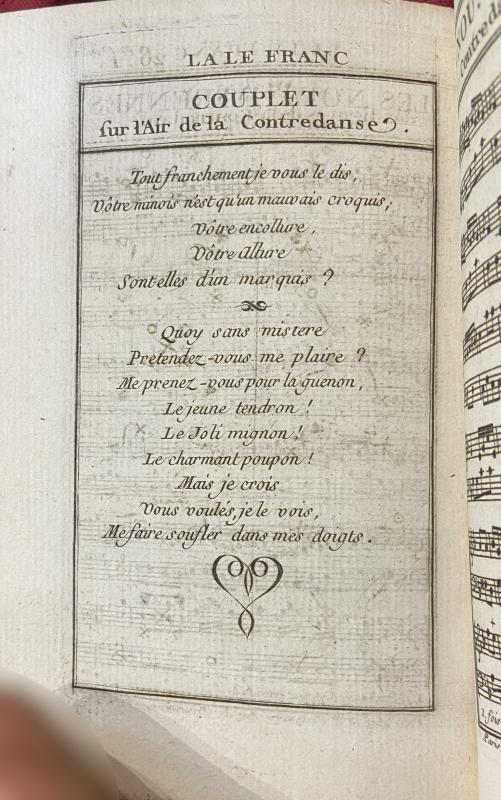 LA LE FRANC
COUPLET
sur l'Air de la Contredanse.
Tout franchement je vous le dis,
Vôtre minois n'est qu'un mauvais croquis;
Vôtre encollure,
Vôtre Allure
Sont elles d'un marquis ?
Quoy sans mistere
Pretendez-vous me plaire ?
Me prenez-vous pour la guenon,
Le jeune tendron !
Le Joli mignon !
Le charmant poupon !
Mais je crois
Vous voulés, je le vois,
Me faire soufler dans mes doigts.
NOU.
Contreda
1. fois
Paris